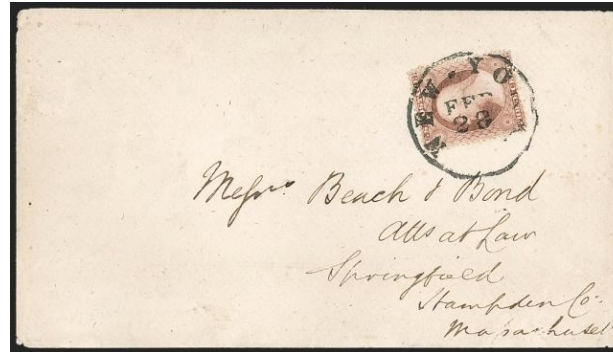 NEW-YO
FEB
23
Messrs Beach & Bond
Atts at Law
Springfield
Hampden Co.
Massachuset